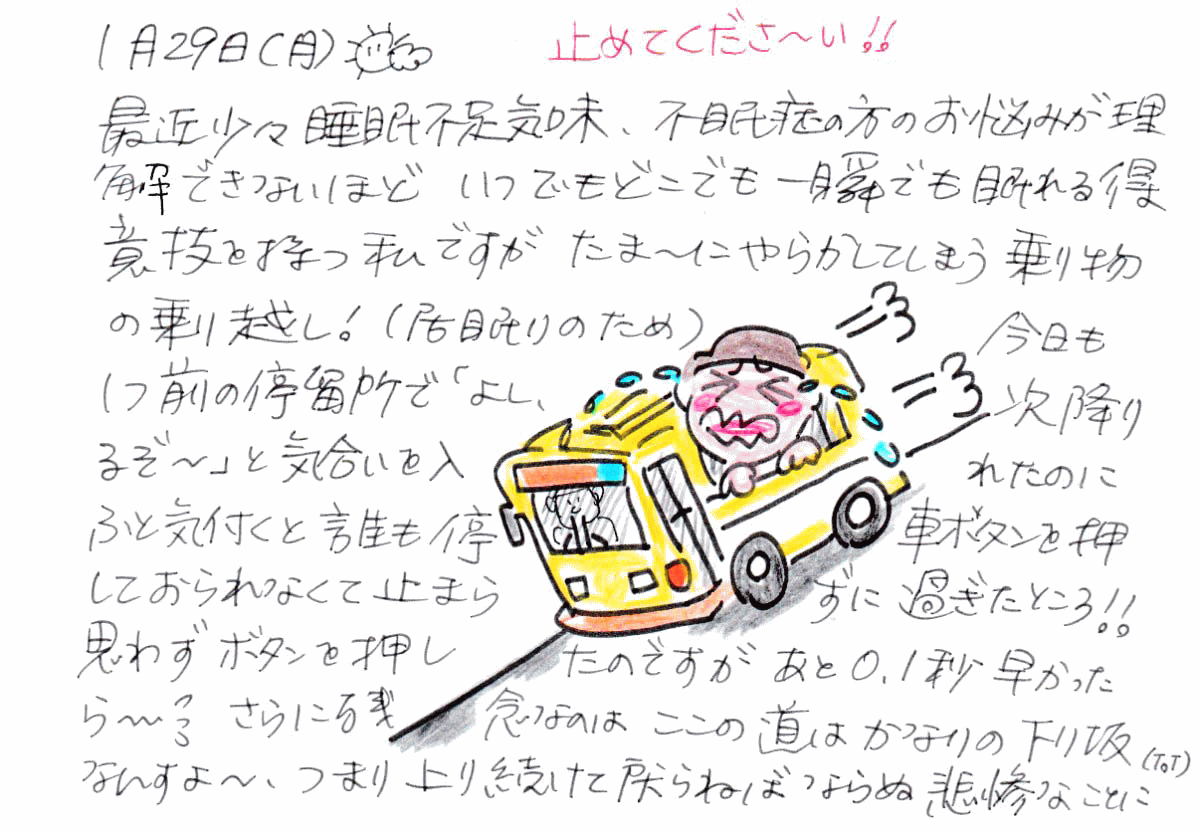 1月29日(月) 止めてくださ〜い!!
最近少々睡眠不足気味、不眠症の方のお悩みが理
解できないほど いつでもどこでも一瞬でも眠れる得
意技を持つ私ですが たま〜にやらかしてしまう乗り物
の乗り越し!(居眠りのため) 今日も
1つ前の停留所で「よし、次降り
るぞ〜」と気合いを入れたのに
ふと気付くと誰も停車ボタンを押
しておられなくて止まらずに過ぎたところ!!
思わずボタンを押したのですが あと0.1秒早かった
ら〜〜? さらに残念なのは ここの道はかなりの下り坂
なんすよ〜、つまり上り続けて戻らねばならぬ悲惨なことに(ToT)